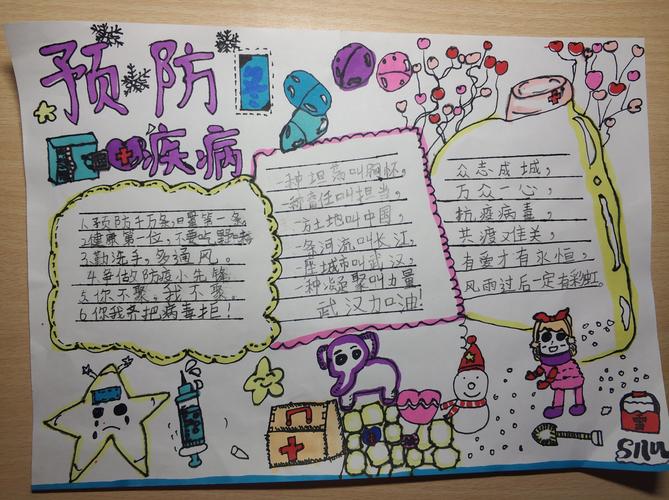 预防
疾病
1.预防千万条,口罩第一条
2.健康第一位,不要吃野味
3.勤洗手,多通风。
4.争做防疫小先锋
5.你不聚,我不聚。
6.你我齐把病毒拒!
一种坦荡叫胸怀,
一种责任叫担当,
一方土地叫中国,
一条河流叫长江,
一座城市叫武汉,
一种凝聚叫力量
武汉加油!
众志成城,
万众一心,
抗疫病毒,
共渡难关,
有爱才有永恒,
风雨过后一定有彩虹。